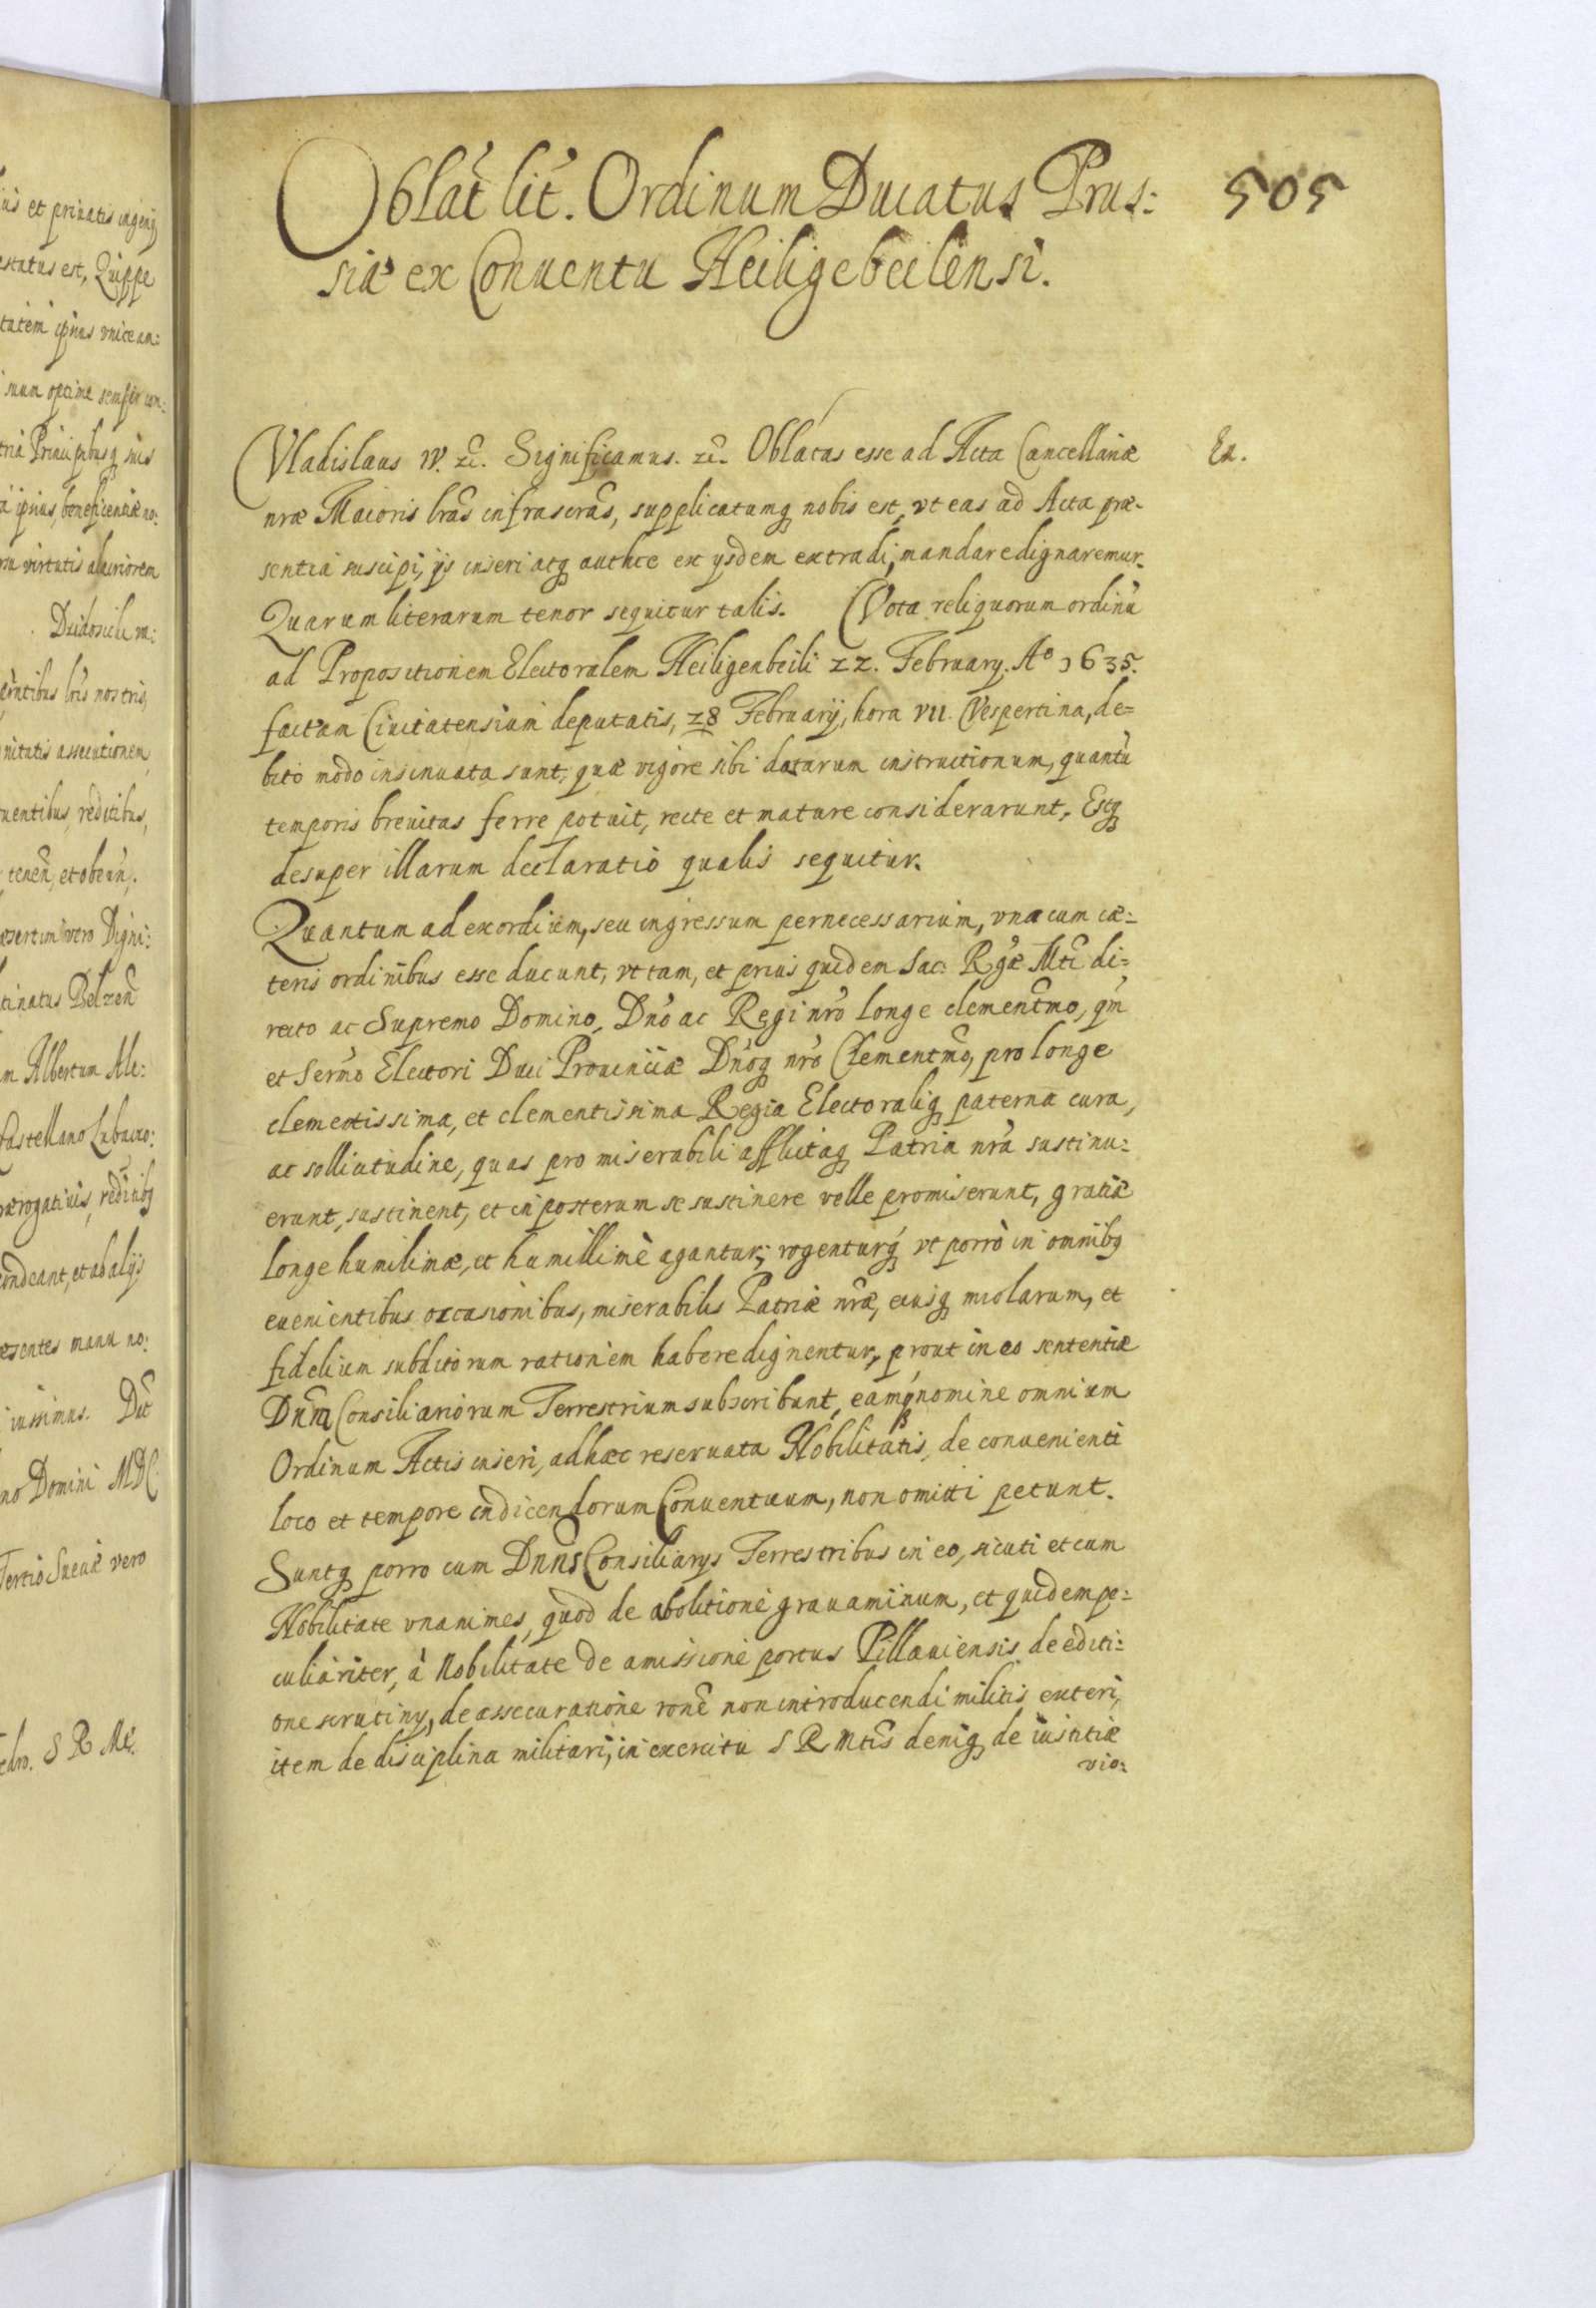 ius et privatis ingenÿ
estatus est, Quippe
tatem ipsius unice an:
suum optime semper con:
tria Principibusq suis
a ipsius, beneficentiæ no:
virtutis alacriorem
nitatis assecutionem
uentibus, reditibus,
tenen, et obeun.
æsertim vero Digni:
tinatus Belzen
m Albertum Ale:
Castellano Lubaczo:
rærogativis, reditibq
et ab alijs
æsentes manu no:
iussimus. Dat
no Domini MDC
Tertio Sueciæ vero
S R Mt.
Oblat lit. Ordinum Ducatus Prus: 505
siæ ex Conventu Heiligebeilensi.
Vladislaus IV. etc. Significamus. etc. Oblatas esse ad Acta Cancellariæ Ex.
nræ Maioris lras infrascras, supplicatumq nobis est, vt eas ad Acta præ-
sentia suscipi, ÿs inseri atq authce ex ÿsdem extradi, mandare dignaremur.
Quarum literarum tenor sequitur talis. Vota reliquorum ordinu
ad Propositionem Electoralem Heiligenbeili 22. February. Aº 1635.
factam Civitatensium deputatis, 28 Februarÿ, hora VII. Vespertina, de=
bito modo insinuata sunt, quæ vigore sibi datarum instructionum, quantu
temporis brevitas ferre potuit, recte et mature considerarunt, Estq
desuper illarum declaratio qualis sequitur.
Quantum ad exordium, seu ingressum pernecessarium, vna cum cæ:
teris ordinibus esse ducunt, vt tam, et prius quidem Sac. Rgæ Mti di=
recto ac Supremo Domino, Dno ac Regi nro longe clementmo, qm
et Sermo Electori Duci Provinciæ Dnoq nro Clementmo, pro longe
clemetissima, et clementissima Regia Electoraliq paterna cura,
ac sollicitudine, quas pro miserabili afflictaq Patria nra sustinu:
erunt, sustinent, et in posterum se sustinere velle promiserunt, gratiæ
longe humilimæ, et humillimè agantur, rogenturq vt porrò in omnibq
evenientibus occasionibus, miserabilis Patriæ nræ, eiusq incolarum, et
fidelium subditorum rationem habere dignentur, prout in eo sententiæ
Dnm Consiliariorum Terrestrium subscribunt, eamq nomine omnium
Ordinum Actis inseri, ad hæc reservata Nobilitatis, de convenienti
loco et tempore indicendorum Conventuum, non omitti petunt.
Suntq porro cum Dnns Consiliarÿs Terrestribus in eo, sicuti et cum
Nobilitate vnanimes, quod de abolitione gravaminum, et quidem pe:
culiariter, à Nobilitate de amissione portus Pillaviensis de editi:
one scrutinÿ, de assecuratione rone non introducendi militis exteri,
item de disciplina militari, in exercitu S R Mtis deniq de iustitiæ
vio: